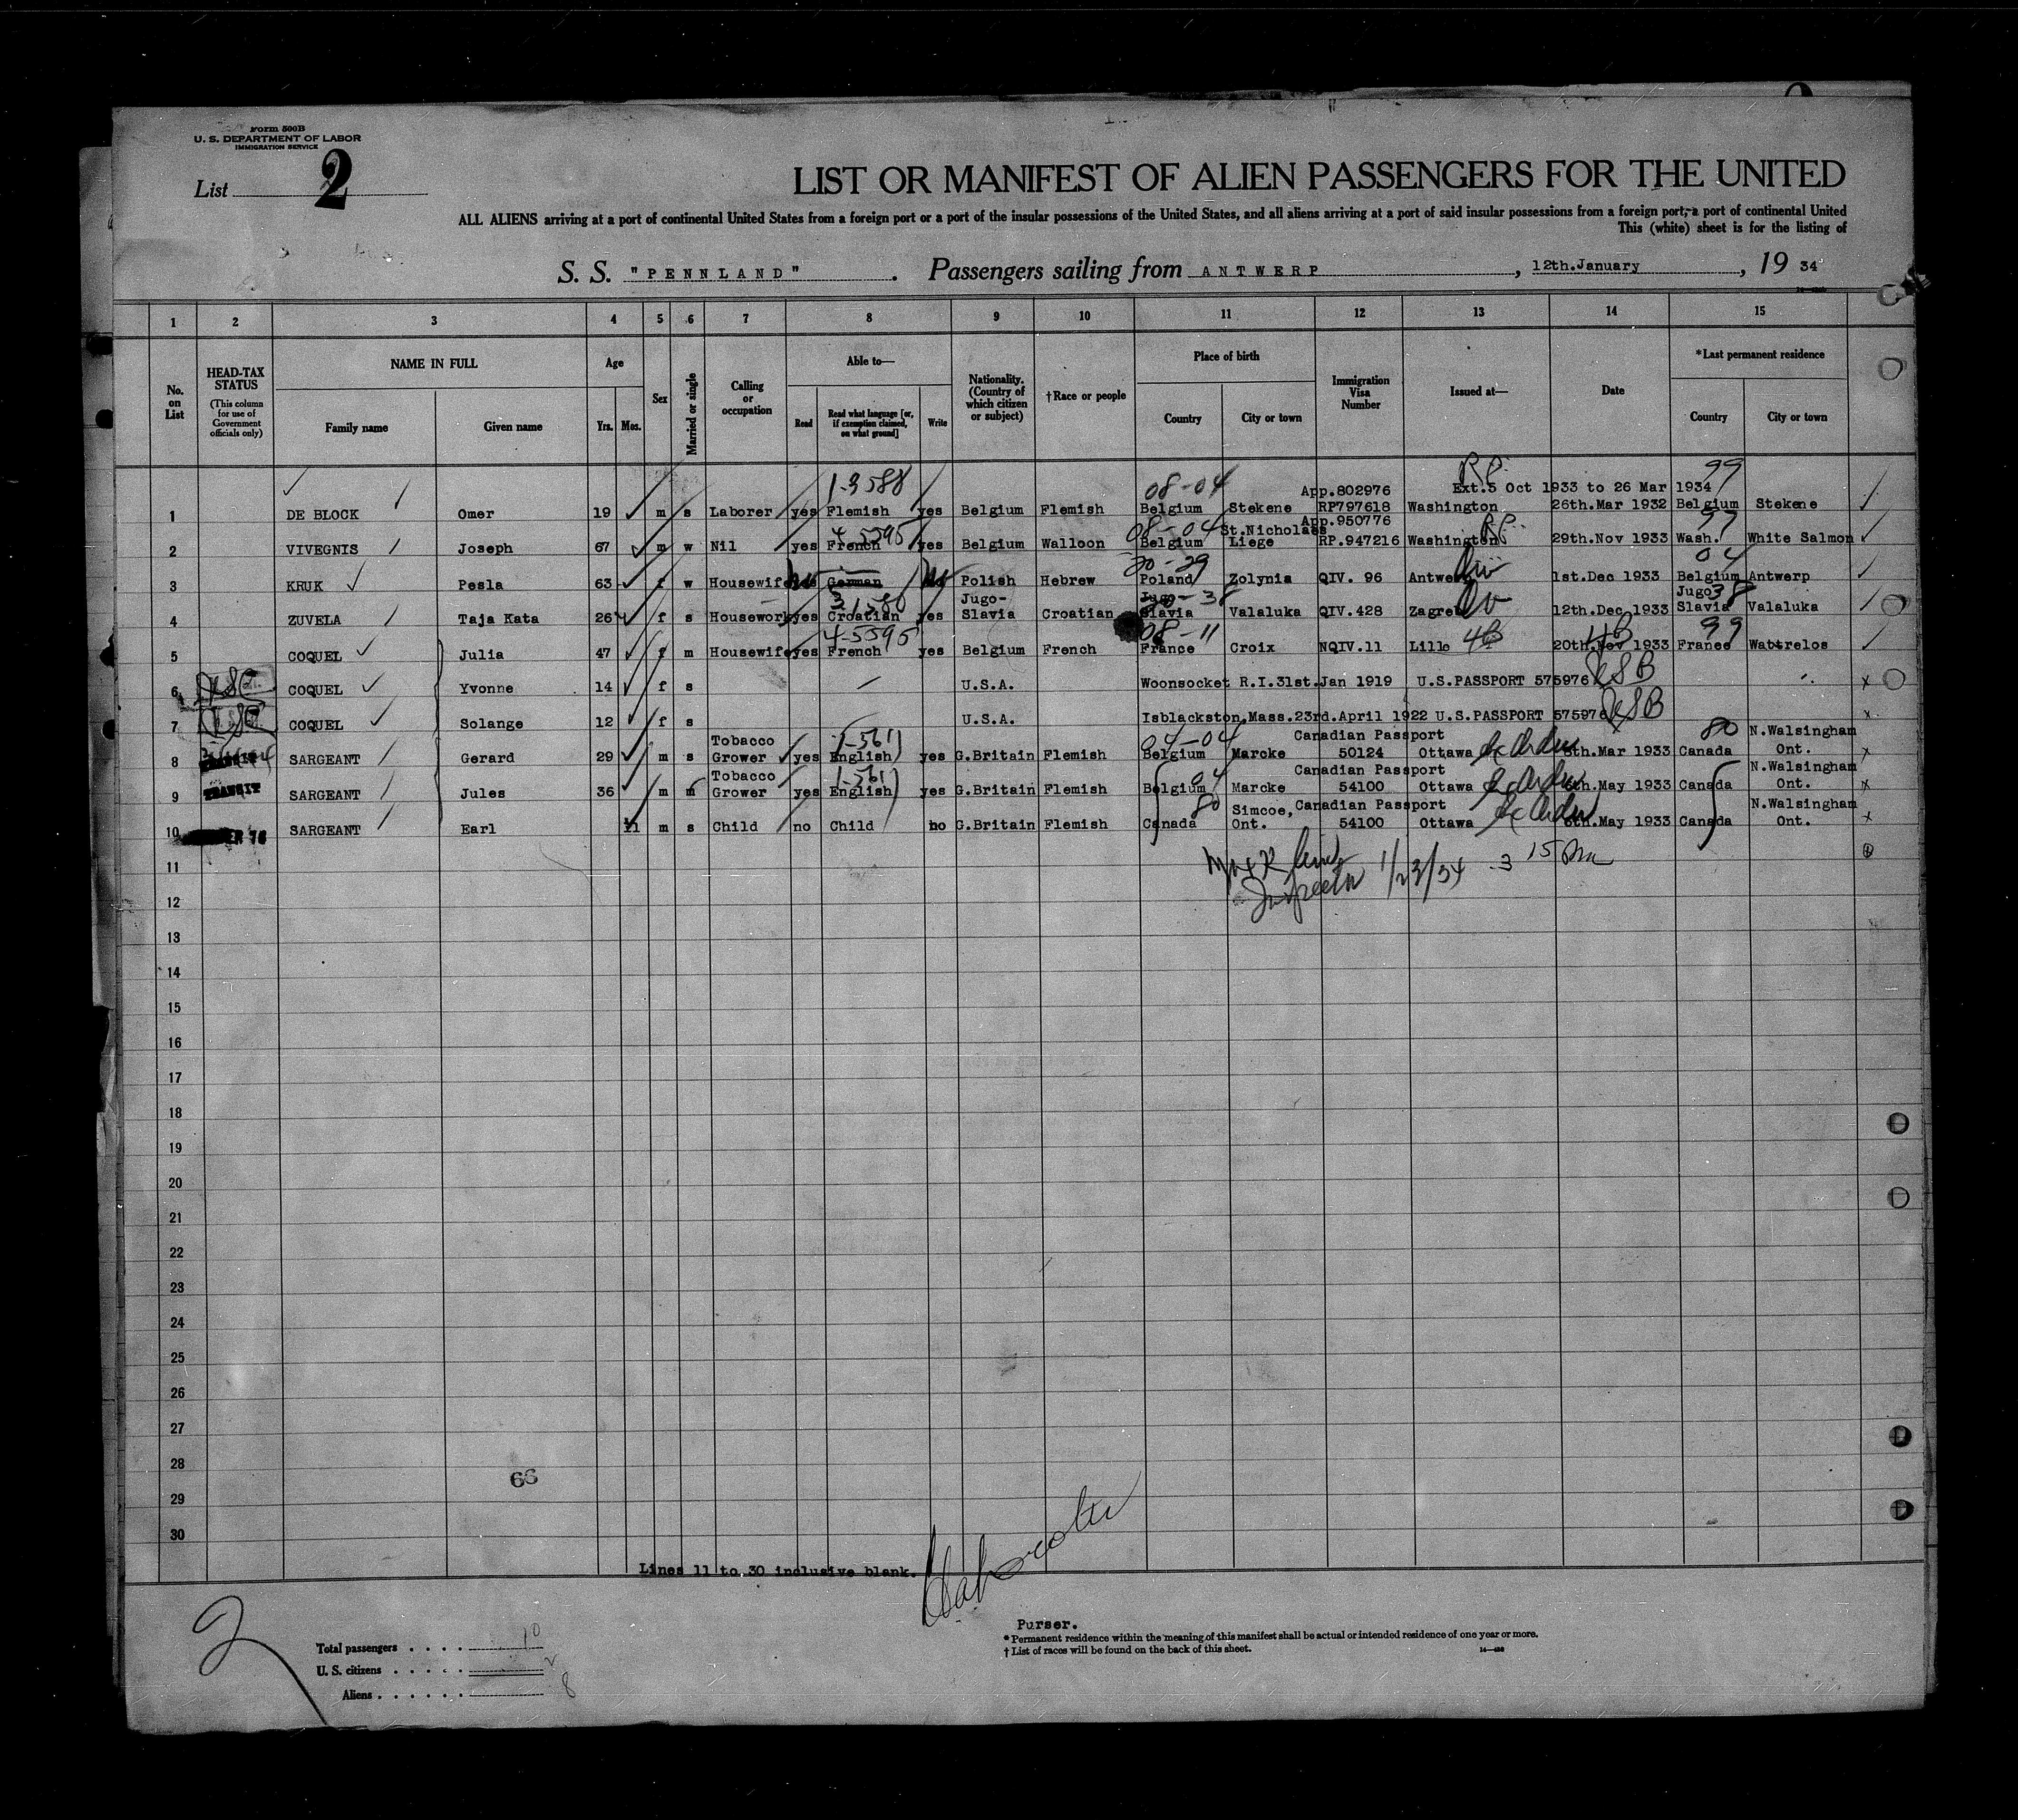 Form 500B
U. S. DEPARTMENT OF LABOR
IMMIGRATION SERVICE
List 2
LIST OR MANIFEST OF ALIEN PASSENGERS FOR THE UNITED
ALL ALIENS arriving at a port of continental United States from a foreign port or a port of the insular possessions of the United States, and all aliens arriving at a port of said insular possessions from a foreign port, a port of continental United
This (white) sheet is for the listing of
S. S. "PENNLAND". Passengers sailing from ANTWERP, 12th.January, 19 34
1 2 3 4 5 6 7 8 9 10 11 12 13 14 15
No. on List
HEAD-TAX STATUS (This column for use of Government officials only)
NAME IN FULL Family name Given name
Age Yrs. Mos.
Sex
Married or single
Calling or occupation
Able to— Read Read what language [or, if exemption claimed, on what ground] Write
Nationality. (Country of which citizen or subject)
†Race or people
Place of birth Country City or town
Immigration Visa Number
Issued at—
Date
*Last permanent residence Country City or town
1-3588 08-04 App.802976 R.P. Ext.5 Oct 1933 to 26 Mar 1934 99
1 DE BLOCK Omer 19 m s Laborer yes Flemish yes Belgium Flemish Belgium Stekene RP797618 Washington 26th.Mar 1932 Belgium Stekene
4-5595 08-04 St.Nicholass App.950776 R.P. 99
2 VIVEGNIS Joseph 67 m w Nil yes French yes Belgium Walloon Belgium Liege RP.947216 Washington 29th.Nov 1933 Wash. White Salmon
30-29 04
3 KRUK Pesla 63 f w Housewife German Polish Hebrew Poland Zolynia QIV. 96 Antwerp 1st.Dec 1933 Belgium Antwerp
Jugo- Jugo- 38 Jugo 38
4 ZUVELA Taja Kata 26 f s Housework yes Croatian yes Slavia Croatian Slavia Valaluka QIV.428 Zagreb 12th.Dec 1933 Slavia Valaluka
4-5595 08-11 4B 4B 99
5 COQUEL Julia 47 f m Housewife yes French yes Belgium French France Croix NQIV.11 Lille 20th.Nov 1933 France Wattrelos
6 COQUEL Yvonne 14 f s U.S.A. Woonsocket R.I.31st.Jan 1919 U.S.PASSPORT 575976
7 COQUEL Solange 12 f s U.S.A. Isblackston.Mass.23rd.April 1922 U.S.PASSPORT 575976
Tobacco 1-561 04-04 Canadian Passport 80 N.Walsingham
8 SARGEANT Gerard 29 m s Grower yes English yes G.Britain Flemish Belgium Marcke 50124 Ottawa 8th.Mar 1933 Canada Ont.
Tobacco 1-561 04 Canadian Passport N.Walsingham
9 TRANSIT SARGEANT Jules 36 m m Grower yes English yes G.Britain Flemish Belgium Marcke 54100 Ottawa 6th.May 1933 Canada Ont.
80 Simcoe, Canadian Passport N.Walsingham
10 SARGEANT Earl 11 m s Child no Child no G.Britain Flemish Canada Ont. 54100 Ottawa 6th.May 1933 Canada Ont.
11 3 15 Pm
12 Inspector 1/23/34
13
14
15
16
17
18
19
20
21
22
23
24
25
26
27
28
66
29
30
Lines 11 to 30 inclusive blank.
Purser.
2
Total passengers 10
U. S. citizens 2
Aliens 8
* Permanent residence within the meaning of this manifest shall be actual or intended residence of one year or more.
† List of races will be found on the back of this sheet.